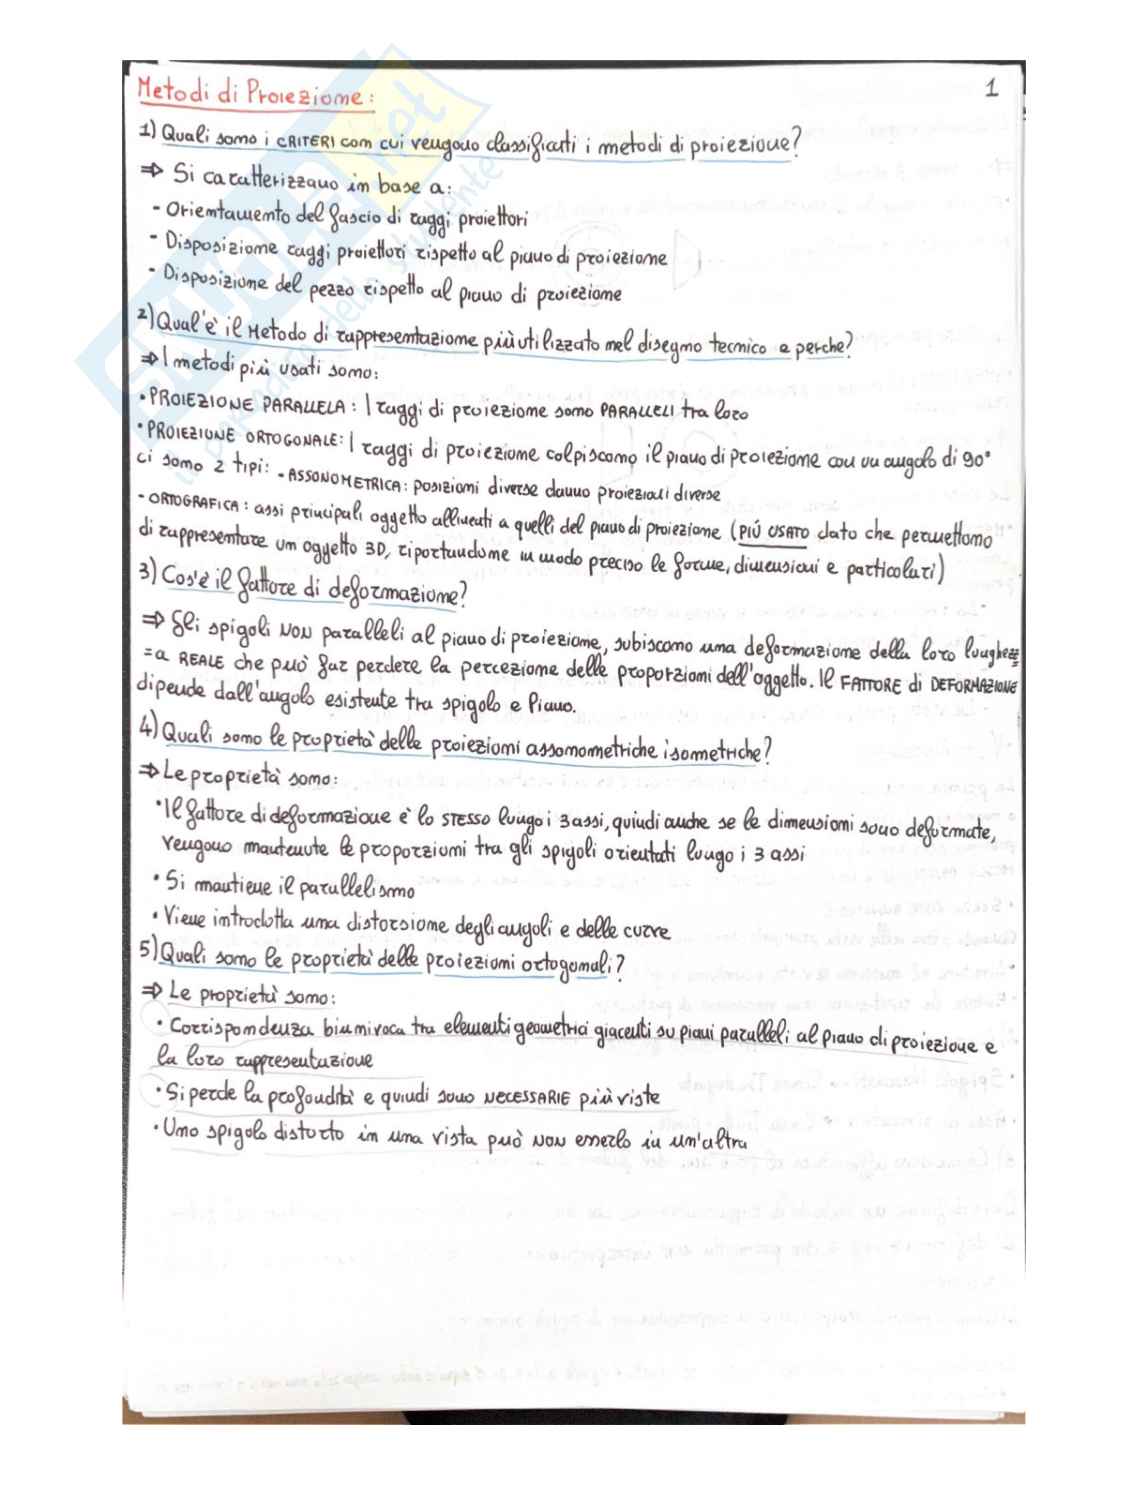 Metodi di Proiezione:
1
1) Quali sono i CRITERI con cui vengono classificati i metodi di proiezione?
⇒ Si caratterizzano in base a:
- Orientamento del fascio di raggi proiettori
- Disposizione raggi proiettori rispetto al piano di proiezione
- Disposizione del pezzo rispetto al piano di proiezione
2) Qual'è il Metodo di rappresentazione più utilizzato nel disegno tecnico e perche?
⇒ I metodi più usati sono:
• PROIEZIONE PARALLELA: I raggi di proiezione sono PARALLELI tra loro
• PROIEZIONE ORTOGONALE: I raggi di proiezione colpiscono il piano di proiezione con un angolo di 90°
ci sono 2 tipi: - ASSONOMETRICA: posizioni diverse danno proiezioni diverse
- ORTOGRAFICA: assi principali oggetto allineati a quelli del piano di proiezione (PIÚ USATO dato che permettono
di rappresentare un oggetto 3D, riportandone in modo preciso le forme, dimensioni e particolari)
3) Cos'è il fattore di deformazione?
⇒ Gli spigoli NON paralleli al piano di proiezione, subiscono una deformazione della loro lunghezz
=a REALE che può far perdere la percezione delle proporzioni dell'oggetto. Il FATTORE di DEFORMAZIONE
dipende dall'angolo esistente tra spigolo e Piano.
4) Quali sono le proprietà delle proiezioni assonometriche isometriche?
⇒ Le proprietà sono:
• Il fattore di deformazione è lo STESSO lungo i 3 assi, quindi anche se le dimensioni sono deformate,
vengono mantenute le proporzioni tra gli spigoli orientati lungo i 3 assi
• Si mantiene il parallelismo
• Viene introdotta una distorsione degli angoli e delle curve
5) Quali sono le proprietà delle proiezioni ortogonali?
⇒ Le proprietà sono:
• Corrispondenza biunivoca tra elementi geometrici giacenti su piani paralleli al piano di proiezione e
la loro rappresentazione
• Si perde la profondità e quindi sono NECESSARIE più viste
• Uno spigolo distorto in una vista può NON esserlo in un'altra